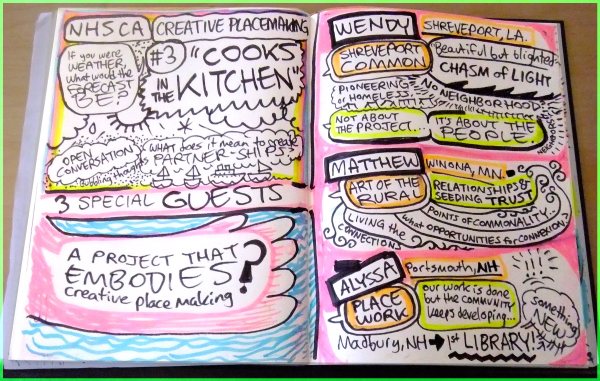 NHSCA
CREATIVE PLACEMAKING
If you were
WEATHER,
what would the
FORECAST
BE?
#3 "COOKS
IN THE
KITCHEN"
OPEN
CONVERSATION
bubbling thoughts
WHAT does it mean to create
PARTNER-SHIPS
3 SPECIAL GUESTS
A PROJECT THAT
EMBODIES
creative place making
?
WENDY
SHREVEPORT, LA.
SHREVEPORT
COMMON
Beautiful but blighted
CHASM of LIGHT
PIONEERING
or HOMELESS
NO NEIGHBORHOOD
NOT ABOUT
THE PROJECT...
IT'S ABOUT THE
PEOPLE.
MATTHEW
WINONA, MN.
ART OF THE
RURAL
RELATIONSHIPS &
SEEDING TRUST
LIVING THE
CONNECTIONS
POINTS OF COMMONALITY...
what OPPORTUNITIES for CONNECTION?
ALYSSA
Portsmouth, NH
PLACE
WORK
our work is done
but the COMMUNITY
keeps developing...
something
NEW!
Madbury, NH → 1st LIBRARY!